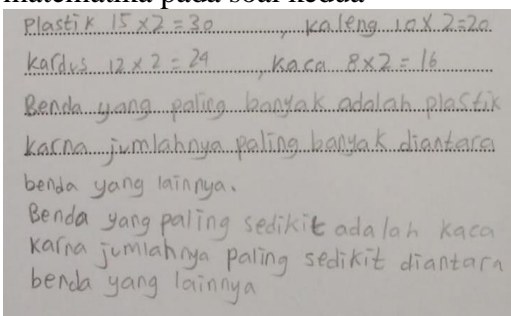 matematika pada soal kedua
Plastik 15 x 2 = 30, kaleng 10 x 2 = 20
Kardus 12 x 2 = 24, Kaca 8 x 2 = 16
Benda yang paling banyak adalah plastik
karna jumlahnya paling banyak diantara
benda yang lainnya.
Benda yang paling sedikit adalah kaca
karna jumlahnya paling sedikit diantara
benda yang lainnya